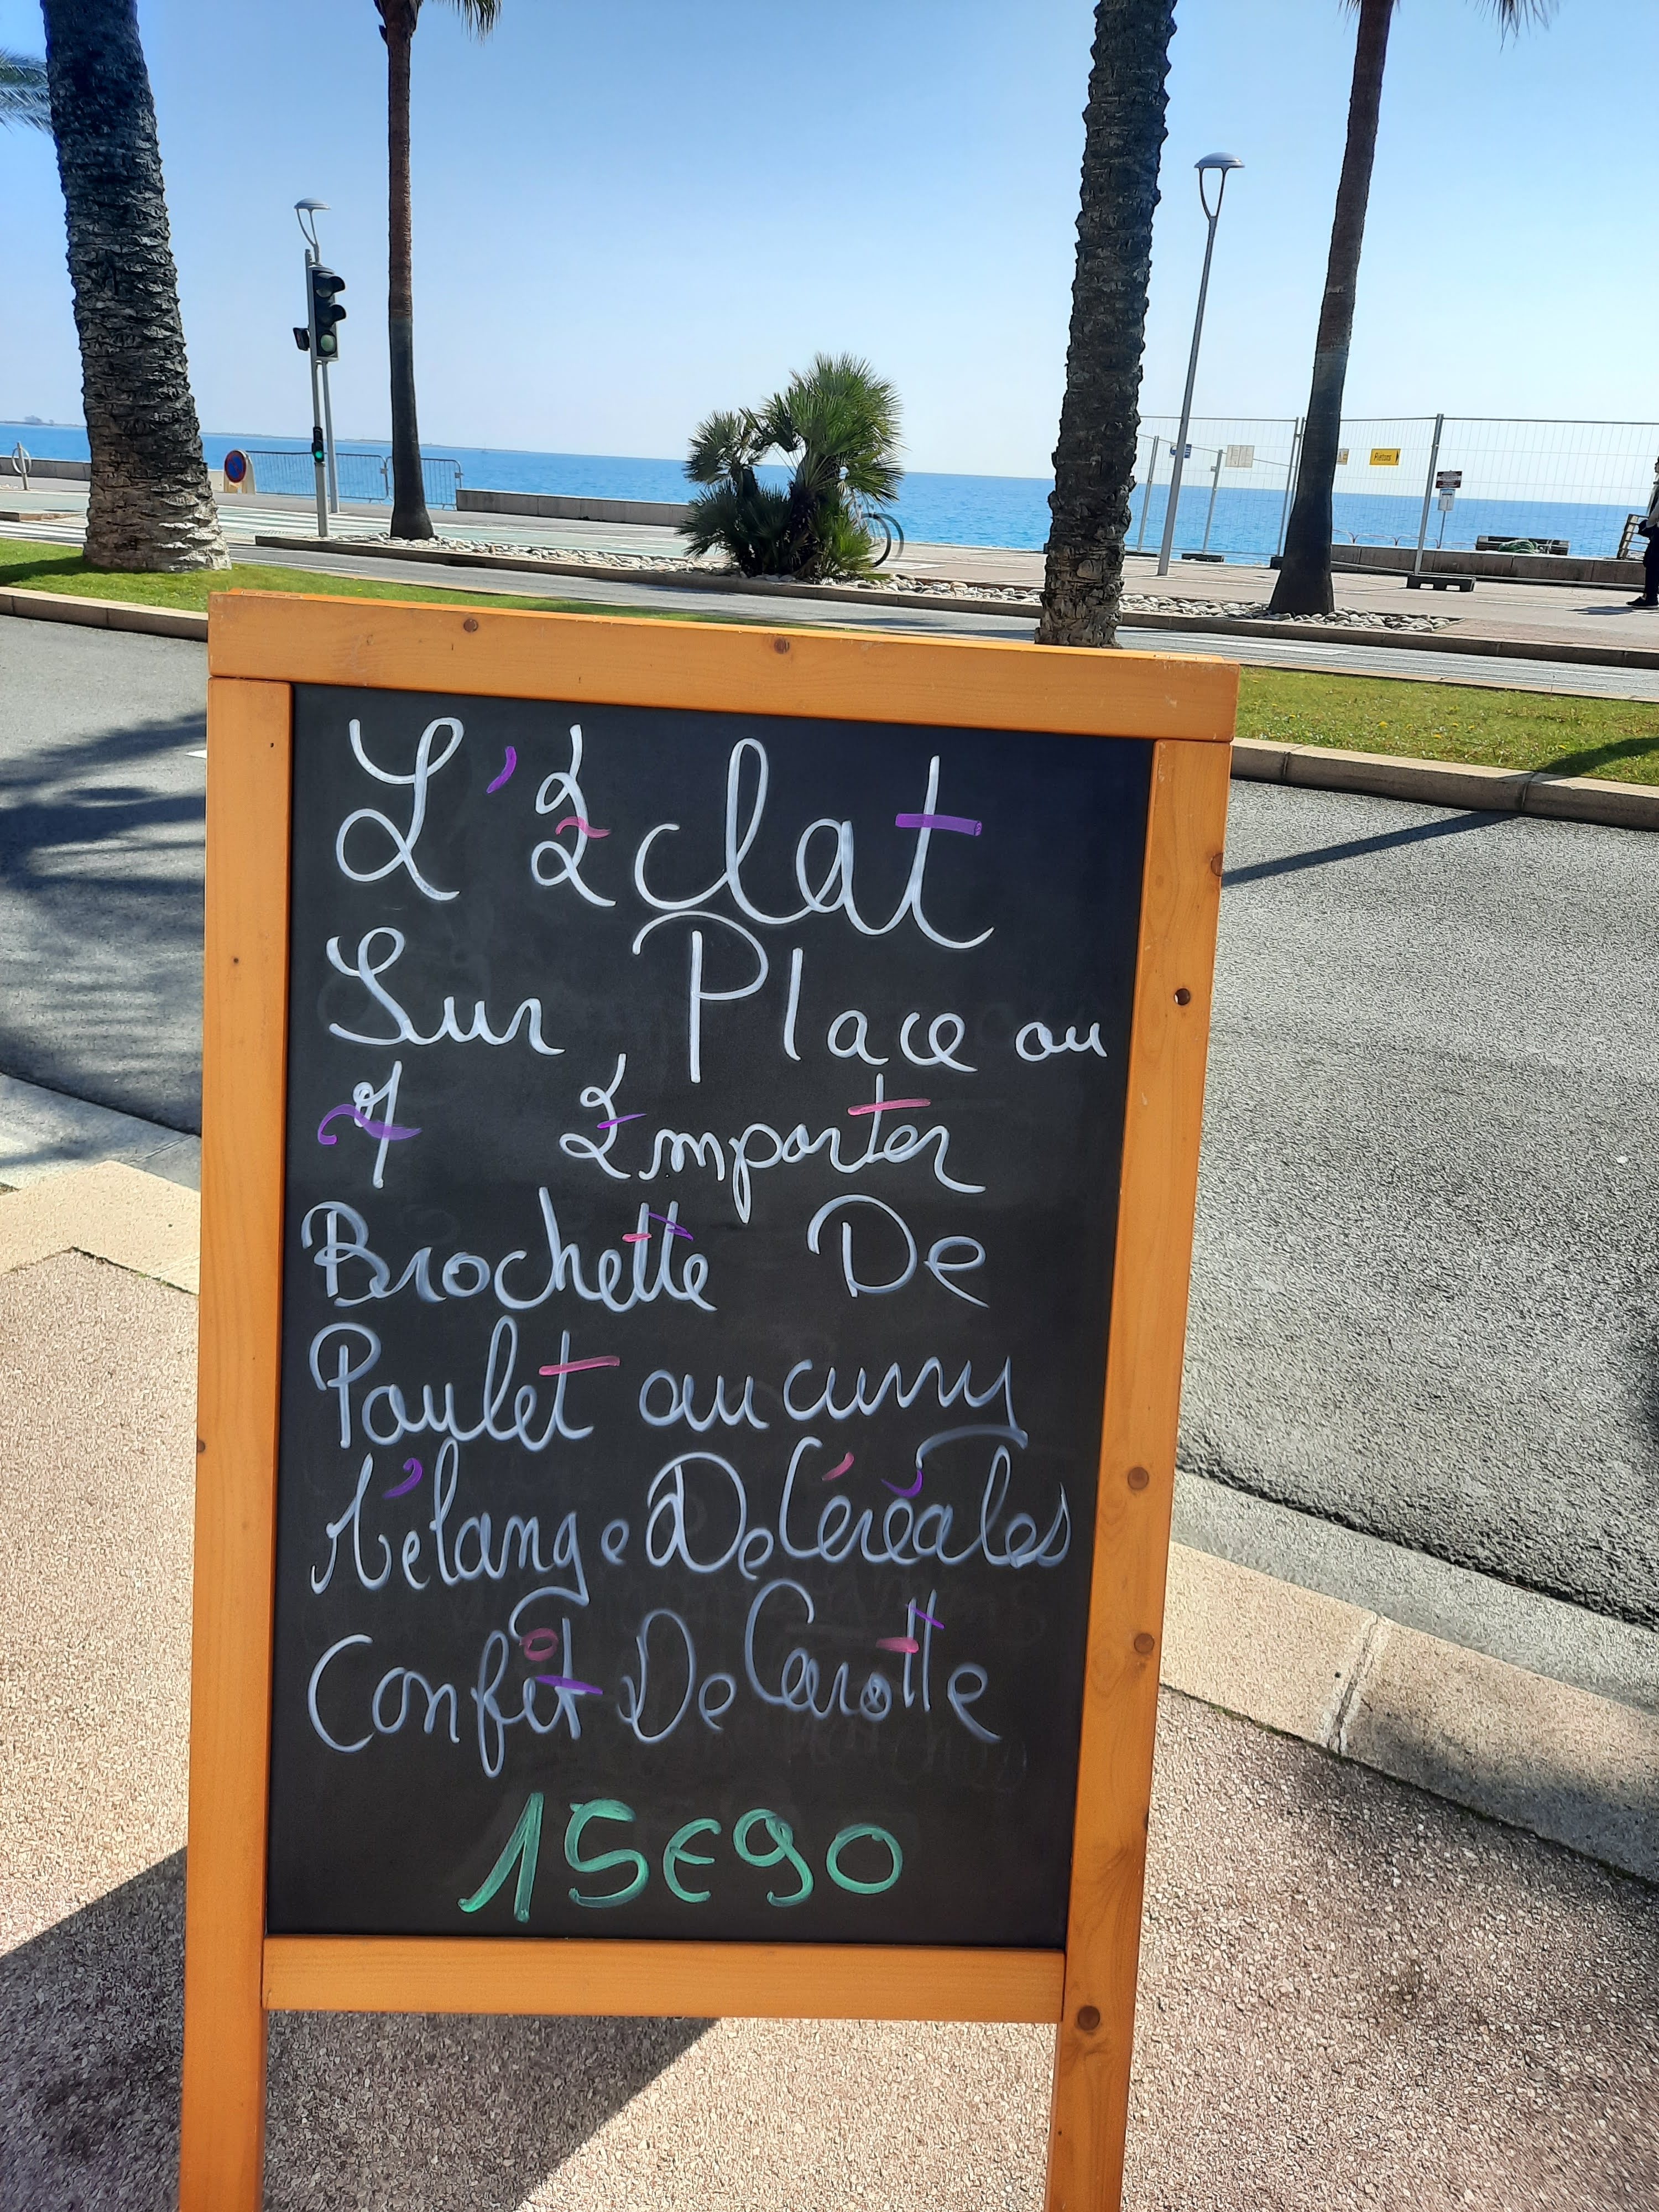 L'Eclat
Sur Place ou
A Emporter
Brochette De
Poulet au curry
Mélange De Céréales
Confit De Carotte
15€90
Piétons